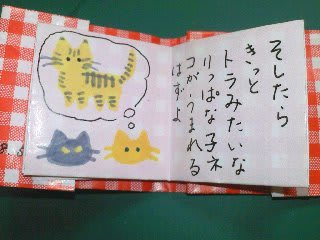 そしたら
きっと
トラみたいな
りっぱな子ネ
コがうまれる
はずよ